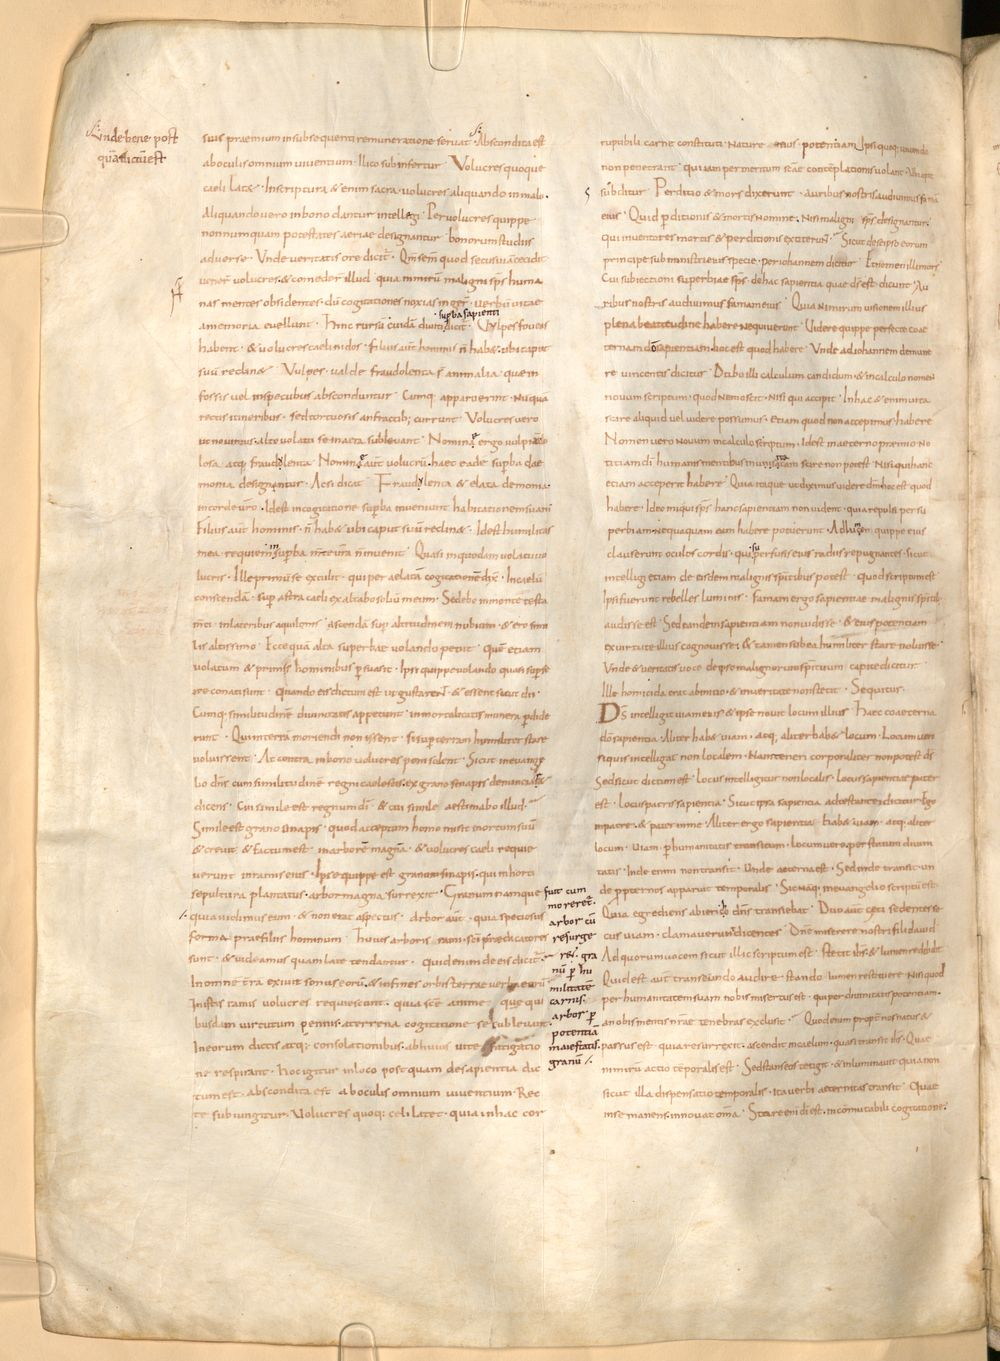 Unde bene post
quā dictū est
suis praemium in subsequenti remuneratione servat · Abscondita est
ab oculis omnium viventium · Ilico subinfertur · Volucres quoque
caeli lat& · In scriptura & enim sacra · volucres aliquando in malo ·
Aliquando vero in bono dantur intellegi · Per volucres quippe
nonnumquam potestates aeriae designantur bonorum studiis
adverse · Unde veritatis ore dicit̄ · Qm̄ semen quod secus via cecidit
vener̄ volucres & comeder̄ illud · quia nimirū maligni sp̄s huma
nas mentes obsidentes · dū cogitationes noxias inger̄ · verbū vitae
a memoria evellunt · Hinc rursū cuidā diviti dicit · Vulpes foveas
superba sapienti
habent · & volucres caeli nidos · filius aut̄ hominis n̄ hab& · ubi caput
suū reclin& · Vulpes · valde fraudolenta s̄ animalia · quae in
fossis vel in specubus absconduntur · Cumq; apparuerint · Nuqua
rectis itineribus · sed tortuosis anfractib; currunt · Volucres vero
ut novimus · alto volatu se in aera sublevant · Nomine ergo vulpiū do
losa atq; fraudulenta · Nomine aut̄ volucrū · haec eadē supba dae
monia designantur · Ac si dicat · Fraudulenta & elata demonia ·
in corde ur̄o · Idest in cogitatione supba invenunt habitationem suam
Filius aut̄ hominis · n̄ hab& ubi caput suū reclin& · Idest humilitas
mea · requiem in supba mente vr̄a n̄ invenit · Quasi in quodam volatu vo
lucris · Ille primū se extulit · qui per aelatā cogitationē dix̄ · In caelū
conscendā · sup astra caeli exaltabo soliū meum · Sedebo in monte testa
m̄ti · in lateribus aquilonis · ascendā sup altitudinem nubium · & ero simi
lis altissimo · Ecce quā alta superbae volando petiit · Quē etiam
volatum & primis hominibus psuasit · Ipsi quippe volando quasi sup se
ire conati sunt · Quando eis dictum est ut gustarent · & essent sicut dii ·
Cumq; similitudinē divinitatis appetunt · inmortalitatis munera pdide
runt · Qui in terrā moriendi non issent · si sup terram humilit̄ stare
voluissent · At contra · in bono volucres poni solent · Sicut in evange
lio dn̄s cum similitudinē regni caelestis · ex grano sinapis denunciasset
dicens · Cui simile est regnum dī · & cui simile aestimabo illud ·
Simile est grano sinapis · quod acceptum homo misit in ortum suū
& crevit · & factum est · in arborē magnā · & volucres caeli requie
verunt in ramis eius · Ipse quippe est granum sinapis · qui in horti
sepultura plantatus · arbor magna surrexit · Granum namque
quia violimus eum · & non erat aspectus · arbor aut̄ · quia speciosus
forma prae filiis hominum · Huius arboris rami · sc̄i predicatores
sunt · & videamus quam late tendantur · Quid enim de eis dicit̄ ·
In omnē t̄ra exiuit sonus eorū · & in fines orbis terrae verba eorū
In istis ramis volucres requiescunt · quia sc̄e anime · que qui
busdam virtutum pennis · a terrena cogitatione se sublevant
In eorum dictis atq; consolationibus · ab huius vite fatigatio
ne respirant · Hoc igitur in loco postquam de sapientia dic
tum est · abscondita est a boculis omnium viventium · Rec
te subiungitur · Volucres quoq; celi latet · quia in hac cor
fuit cum
moreret̄ ·
arbor cū
resurge
ret · gra
nū p hu
militate
carnis ·
arbor p
potentiā
maiestatis ·
granū
rupibili carne constituti · Nature eius potentiam ipsi quoq; videndo
non penetrant · qui iam per meritum sc̄ae contēplationis volant
subditur · Perditio & mors dixerunt · auribus nostris audivimus famā
eius · Quid pditionis & mortis nomine · Nisi maligni sp̄s designantur ·
qui inventores mortis & perditionis extiterunt · Sicut de ipso eorum
principe sub ministri eius specie · per iohannem dicitur · Et nomen illi mors
Cui subiecti omnes superbiae sp̄s · de hac sapientia quae dī est · dicunt · Au
ribus nostris audivimus famam eius · Quia nimirum visionem illius
plena beatitudine habere nequiverunt · Videre quippe perfecte coae
ternam dō sapientiam · hoc est quod habere · Unde ad iohannem de mune
re vincentis dicitur · Dabo illi calculum candidum · & in calculo nomen
novum scriptum · quod nemo scit · Nisi qui accipit · In hac & enim vita
scire aliquid vel videre possumus · etiam quod non accepimus habere
Nomen vero novum in calculo scriptum · Idest in aeterno praemio · No
titiam dī humanis mentibus inusitatam · scire non potest · Nisi qui hanc
etiam acceperit habere · Quia itaque ut diximus videre dm̄ hoc est quod
habere · Ideo iniqui sp̄s hanc sapientiam non vident · quia repulsi per su
perbiam · nequaquam eam habere potuerunt · Ad lumen quippe eius
clauserunt oculos cordis · qui superfusis eius radiis repugnantes · sicut
intellegi etiam de eisdem malignis sp̄ritibus potest · quod scriptum est
Ipsi fuerunt rebelles luminis · famam ergo sapientiae malignis sp̄ritib;
audisse est · Sed eandem sapientiam non vidisse · & eius potentiam
ex virtute illius cognovisse · & tamen sub ea humilit̄er stare noluisse
Unde & veritatis voce de ipso malignorum sp̄rituum capite dicitur ·
Ille homicida erat ab initio · & in veritate non stetit · Sequitur ·
Ds̄ intelligit viam eius & ipse novit locum illius · Haec coaeterna
dō sapientia · Aliter hab& viam · atq; aliter hab& locum · Locum ver̄
si quis intellegat non localem · Nam teneri corporaliter non potest ds̄
Sed sicut dictum est · locus intelligitur non localis · Locus sapientiae pater
est · Locus patris sapientia · Sicut ipsa sapientia adtestante dicitur · Ego
in patre · & pater in me · Aliter ergo sapientia hab& viam · atq; aliter
locum · Viam · p humanitatis transitum · Locum vero · per statum divini
tatis · Inde enim non transit · Unde aeterna est · Sed inde transit · un
de ppter nos apparuit temporalis · Sic nāq; in evangelio scriptū est
Quia egrediens ab iericho dn̄s transiebat · Duo aut̄ ceci sedentes se
cus viam · clamaverunt dicentes · Dn̄e miserere nostri fili david
Ad quorum vocem sicut illic scriptum est · stetit ih̄s · & lumen reddidit
Quid est aut̄ transeundo audire · stando lumen restituere · Nisi quod
per humanitatem suam nobis misertus est · qui per divinitatis potentiam ·
a nobis mentis nr̄ae tenebras exclusit · Quod enim propt̄ nos natus &
passus est · quia resurrexit · ascendit in caelum · quasi transit ih̄s · Quae
nimirū actio tēporalis est · Sed stans eos tetigit · & inluminavit · quia non
sicut illa dispensatio temporalis · ita verbi aeternitas transit · Quae
in se manens · innovat om̄a · Stare eni dī est · incōmutabili cogitatione ·